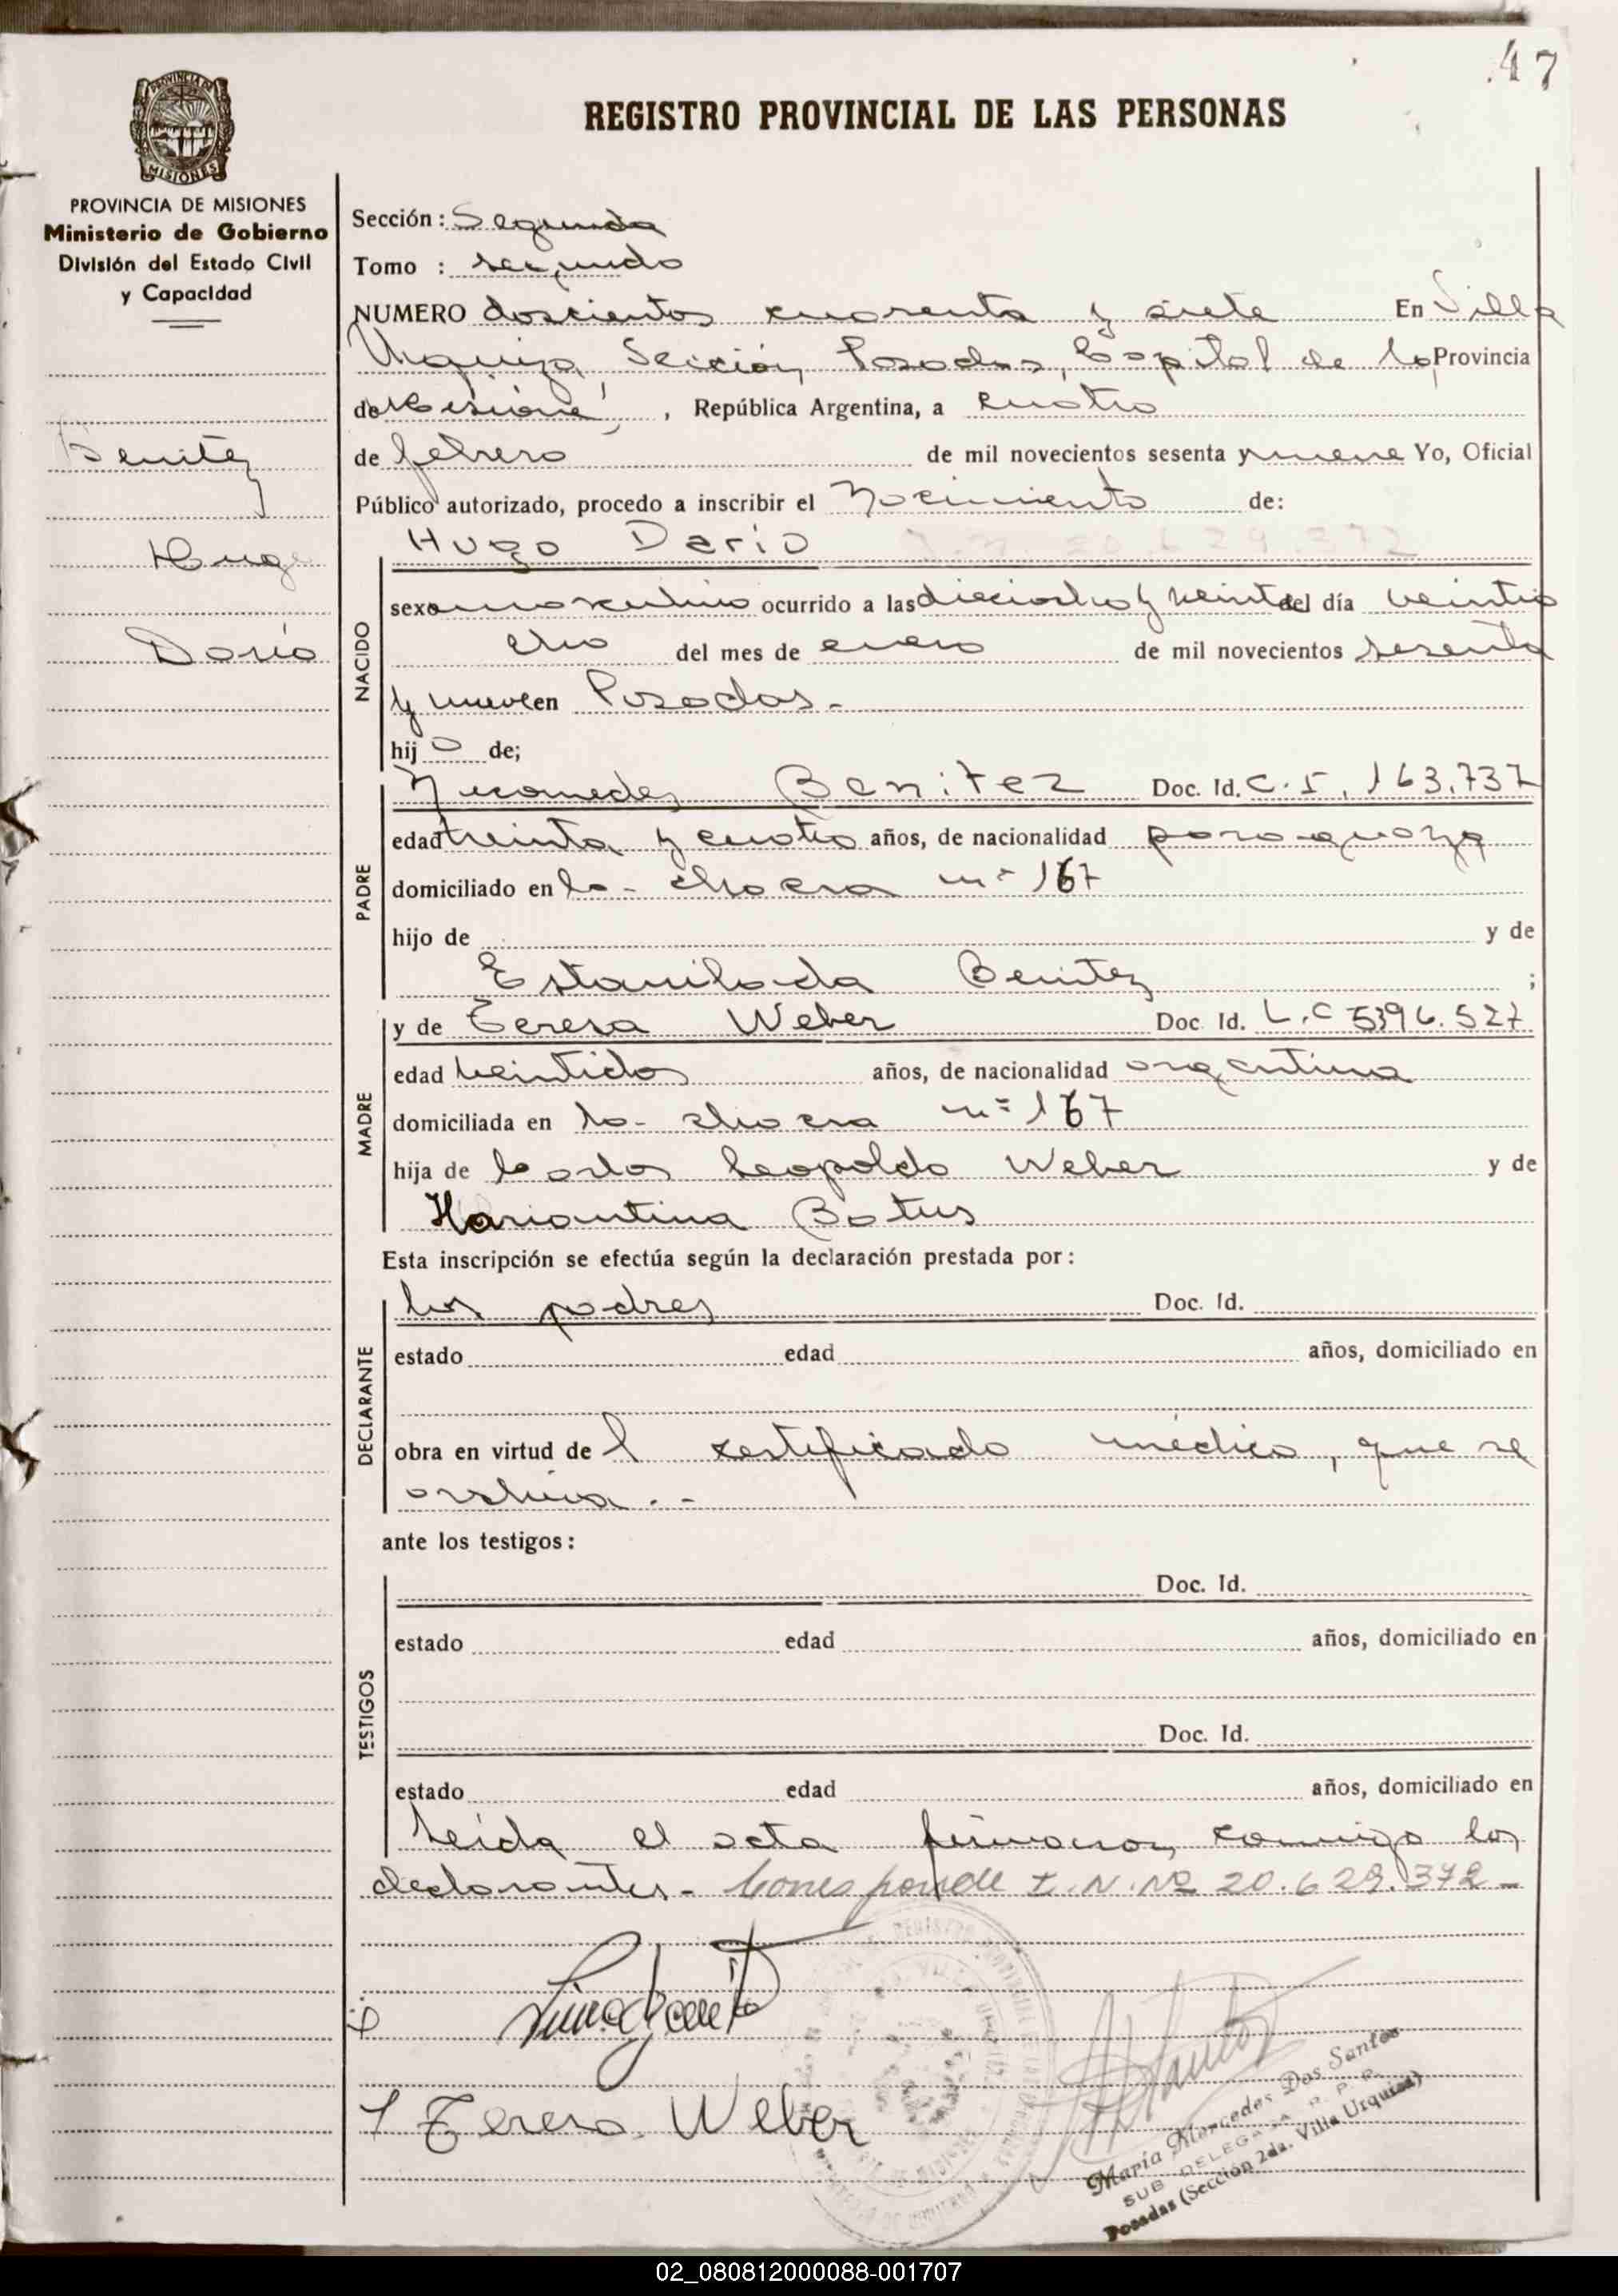 47
REGISTRO PROVINCIAL DE LAS PERSONAS
PROVINCIA DE MISIONES
Ministerio de Gobierno
División del Estado Civil
y Capacidad
Benitez
Hugo
Dario
Sección: Segunda
Tomo : segundo
NUMERO doscientos cuarenta y siete En Villa
Urquiza, Sección Posadas, Capital de la Provincia
de Misiones, República Argentina, a cuatro
de febrero de mil novecientos sesenta y nueve Yo, Oficial
Público autorizado, procedo a inscribir el Nacimiento de:
Hugo Dario I.N. 20.629.372
NACIDO
sexo masculino ocurrido a las dieciocho y veinte del día veintio
cho del mes de enero de mil novecientos sesenta
y nueve en Posadas.-
hijo de;
PADRE
Nicomedes Benitez Doc. Id. C.I. 163.737
edad treinta y cuatro años, de nacionalidad paraguaya
domiciliado en la- chacra nº 167
hijo de y de
Estanilada Benitez ;
MADRE
y de Teresa Weber Doc. Id. L.C 5396.527
edad veintidos años, de nacionalidad argentina
domiciliada en la- chacra nº 167
hija de Carlos Leopoldo Weber y de
Mariantina Batus
Esta inscripción se efectúa según la declaración prestada por:
DECLARANTE
los padres Doc. Id.
estado edad años, domiciliado en
obra en virtud del certificado médico, que se
archiva.-
ante los testigos:
TESTIGOS
Doc. Id.
estado edad años, domiciliado en
Doc. Id.
estado edad años, domiciliado en
Leída el acta firmaron conmigo los
declarantes.- Corresponde I.N. Nº 20.629.372-
Teresa Weber
María Mercedes Dos Santos
SUB DELEGADA R. P. P.
Posadas (Sección 2da. Villa Urquiza)
02_080812000088-001707